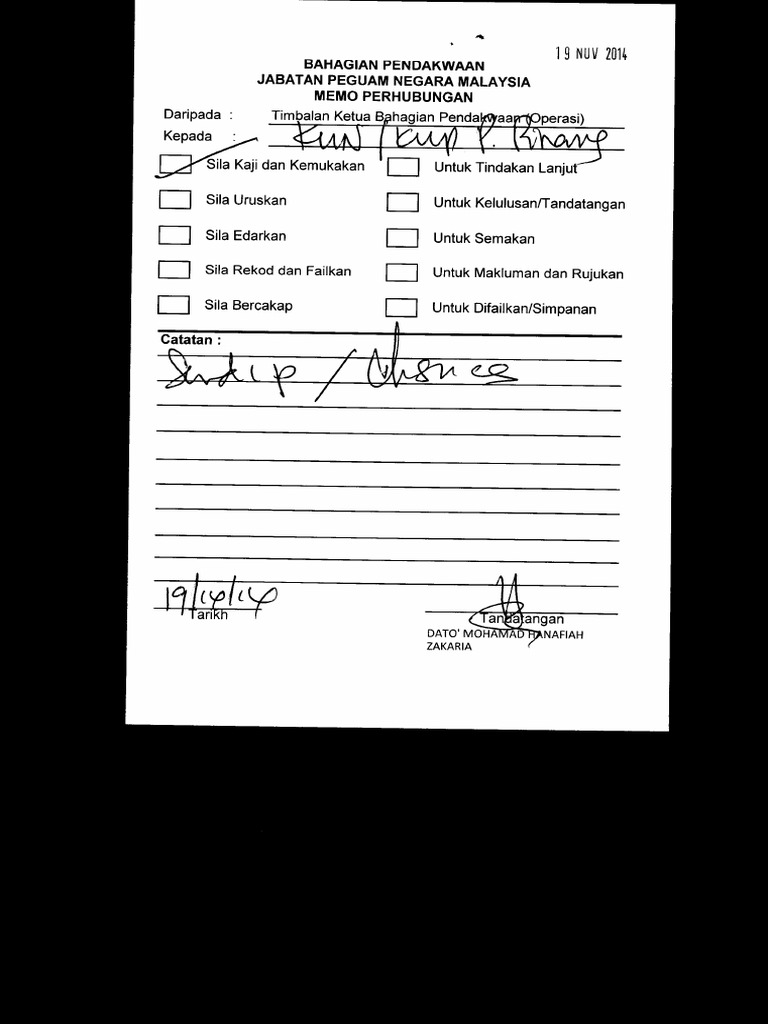 19 NOV 2014
BAHAGIAN PENDAKWAAN
JABATAN PEGUAM NEGARA MALAYSIA
MEMO PERHUBUNGAN
Daripada : Timbalan Ketua Bahagian Pendakwaan (Operasi)
Kepada : KUN / KUP P. Pinang
Sila Kaji dan Kemukakan Untuk Tindakan Lanjut
Sila Uruskan Untuk Kelulusan/Tandatangan
Sila Edarkan Untuk Semakan
Sila Rekod dan Failkan Untuk Makluman dan Rujukan
Sila Bercakap Untuk Difailkan/Simpanan
Catatan :
/
Tarikh Tandatangan
DATO' MOHAMAD HANAFIAH
ZAKARIA